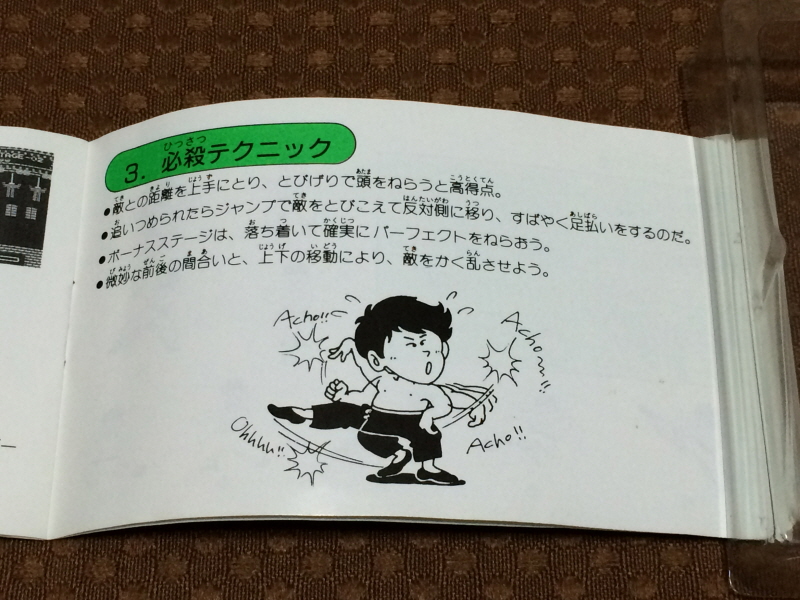 3. 必殺テクニック
●敵との距離を上手にとり、とびげりで頭をねらうと高得点。
●追いつめられたらジャンプで敵をとびこえて反対側に移り、すばやく足払いをするのだ。
●ボーナスステージは、落ち着いて確実にパーフェクトをねらおう。
●微妙な前後の間合いと、上下の移動により、敵をかく乱させよう。
Acho!!
Acho~!!
Ohhhh!!
Acho!!